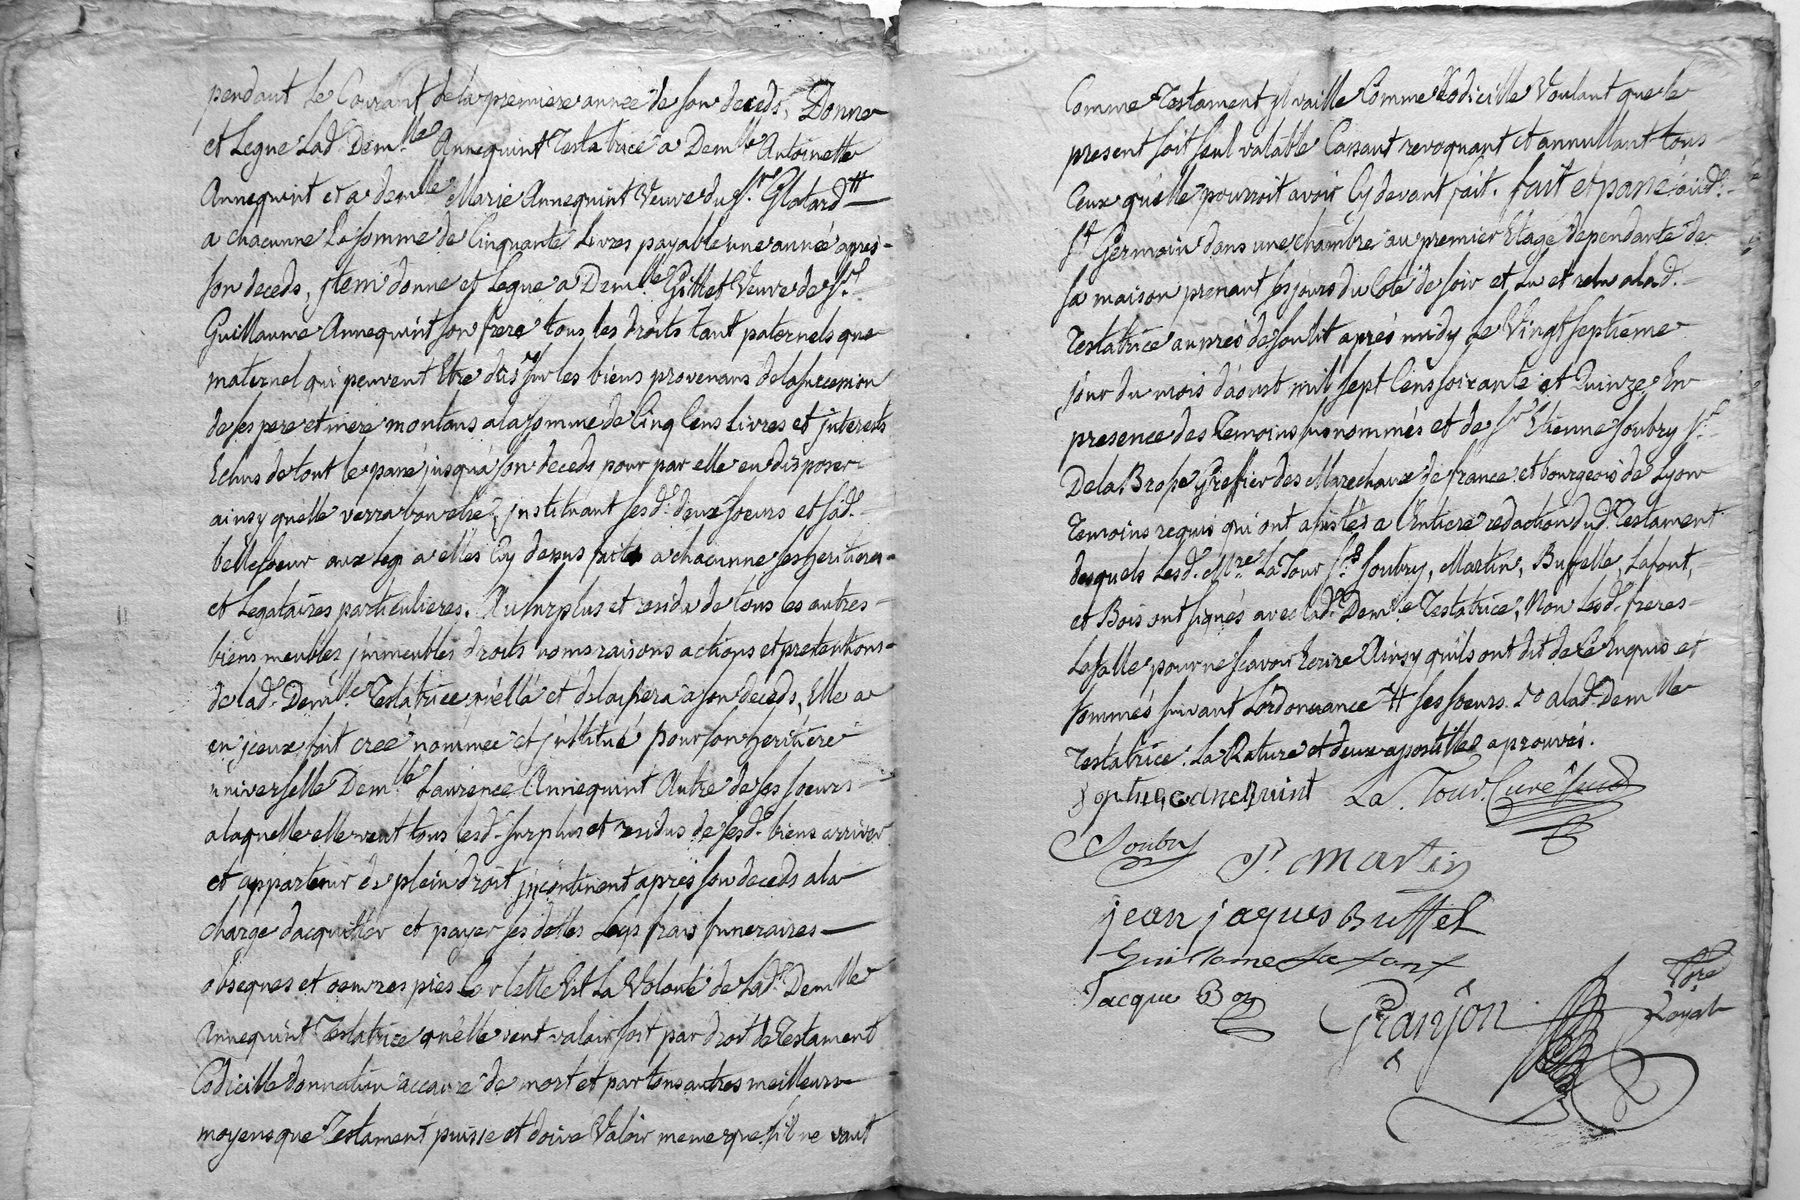 pendant Le Courant dela premiere année de son deceds, Donne
et Legue Lad. Dem.lle Annequint Testatrice a Dem.lle Antoinette
Annequint et a dem.lle Marie Annequint Veuve du S.r Glatard #
a chacunne La somme de Cinquante Livres payable une année apres
son deceds, jtem donne et Legue a Dem.lle Gillet Veuve de S.r
Guillaume Annequint son frere tous les droits tant paternels que
maternel qui peuvent Etre dûs sur les biens provenans dela succession
de ses pere et mere montans ala somme de Cinq Cens Livres et jnterests
Echus de tout le passé jusqu'a son deceds pour par elle en disposer
ainsy quelle verra bon etre, jnstituant sesd. deux soeurs et sad.
bellesoeur aux legs a elles Cy dessus faits a chacunne ses heritieres
et Legataires particulieres. Au surplus et residu de tous les autres
biens meubles jmmeubles droits noms raisons actions et pretentions
de lad. Dem.lle Testatrice qu'ella et delaissera a son deceds, Elle a
en jceux fait creé nommée et jnstitué pour son heritiere
universelle Dem.lle Laurence Annequint Autre de ses soeurs
a laquelle elle veut tous lesd. surplus et residus de sesd. biens arriver
et appartenir de plein droit jncontinent apres son deceds ala
charge dacquitter et payer ses dettes Legs frais funeraires
obseques et oeuvres pies Car telle Est La Volonté de Lad. Dem.lle
Annequint Testatrice qu'elle veut valoir soit par droit de Testament
Codicille donnation accause de mort et par tous autres meilleurs
moyens que Testament puisse et doive Valoir meme que s'il ne vaut
Comme Testament jl vaille Comme Codicille Voulant que le
present soit seul valable Cassant revoquant et annullant tous
Ceux qu'elle pourroit avoir Cy devant fait. fait et passé aud.
S.t Germain dans une chambre au premier Etage dependante de
sa maison prenant ses jours du Coté de soir et Lu et relu alad.
Testatrice aupres de son lit après midy Le Vingt septieme
jour du mois d'aoust mil sept Cens soixante et Quinze En
presence des Temoins susnommés et de S.r Etienne Soubry S.r
De la Brosse Greffier des Marechaux de france et bourgeois de Lyon
Temoins requis qui ont assistés a l'Entiere redaction dud. Testament
desquels Lesd. M.re La Tour S.rs Soubry, Martin, Buffelle, Lafont,
et Bois ont signés avec lad. Dem.lle Testatrice, Non Lesd. freres
Lasalle pour ne scavoir Ecrire Ainsy qu'ils ont dit de Ce Enquis et
sommés suivant Lordonnance # ses soeurs. 2° alad. Dem.lle
Testatrice. La Rature et deux apostilles aprouvés.
La Tour Curé
Soubry P. Martin
jean jaques Buffel
Guillome Lafont
Jacque Boy Granjon No.re Royal